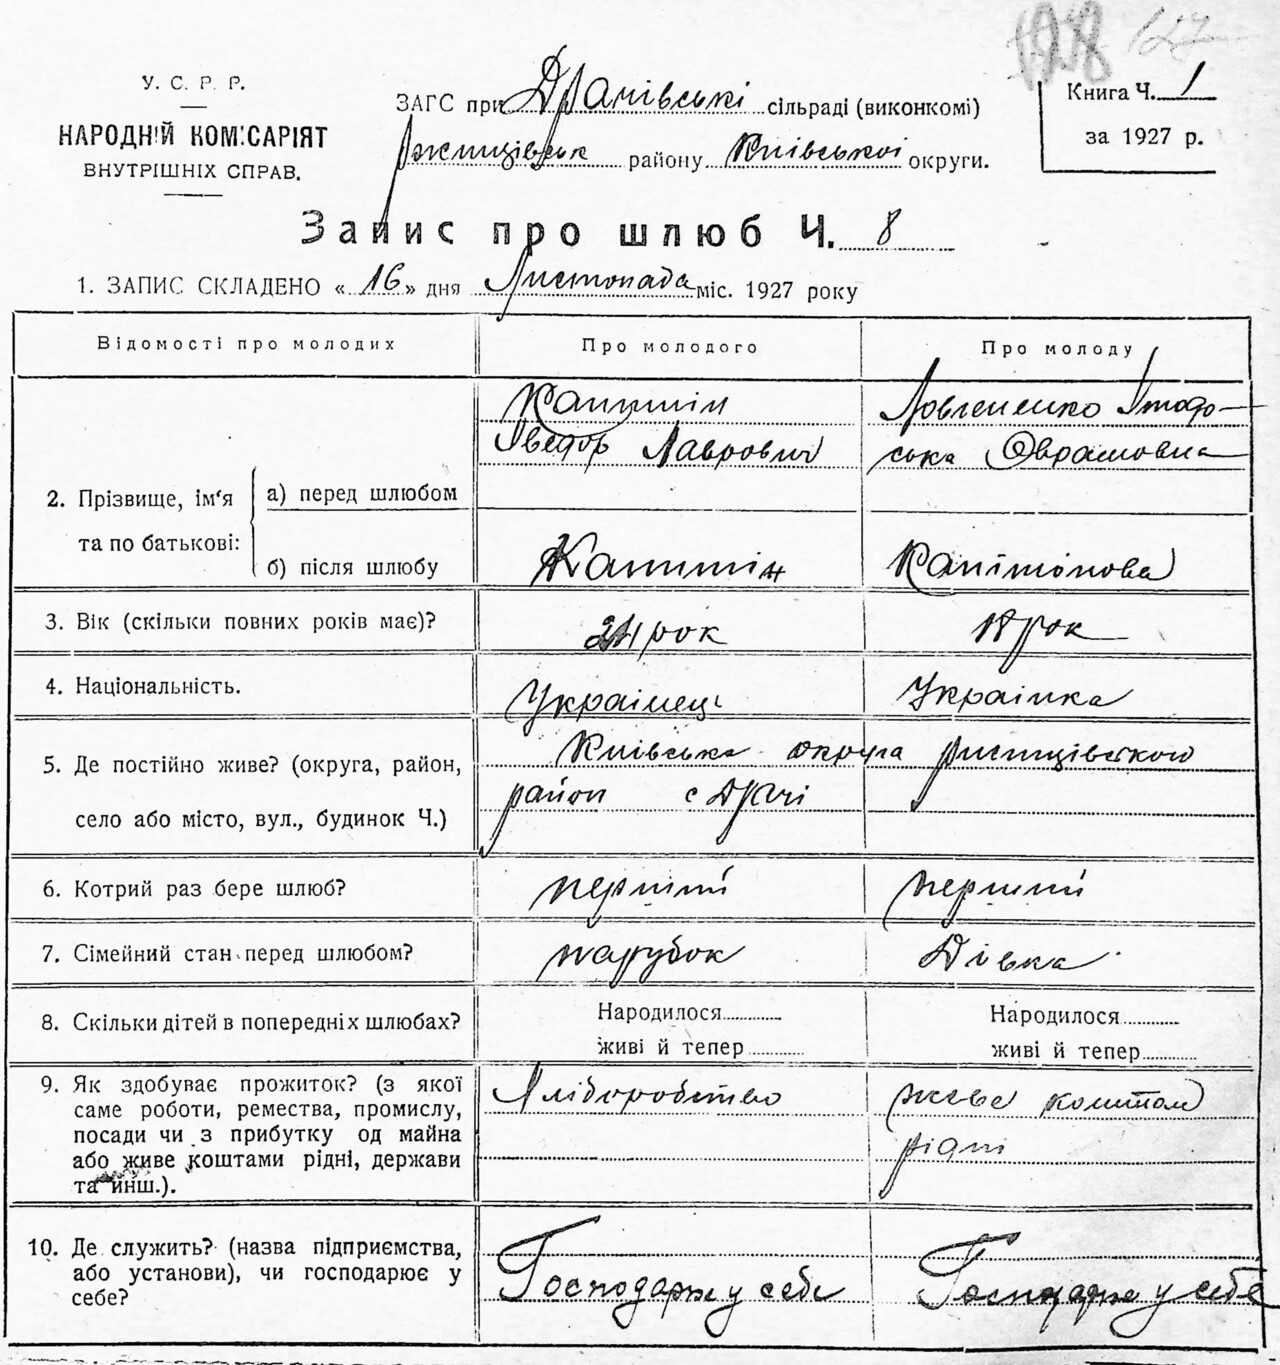 128 127
У. С. Р. Р.
НАРОДНІЙ КОМІСАРІЯТ
ВНУТРІШНІХ СПРАВ.
ЗАГС при Драчівські сільраді (виконкомі)
Ржищівськ району Київської округи.
Книга Ч. 1
за 1927 р.
Запис про шлюб Ч. 8
1. ЗАПИС СКЛАДЕНО «16» дня Листопада міс. 1927 року
Відомості про молодих
Про молодого
Про молоду
2. Прізвище, ім'я
та по батькові:
а) перед шлюбом
б) після шлюбу
Лаврович
Оврамовна
3. Вік (скільки повних років має)?
24 рок
18 рок
4. Національність.
Українець
Українка
5. Де постійно живе? (округа, район,
село або місто, вул., будинок Ч.)
Київська округа Ржищівского
район с Драчі
6. Котрий раз бере шлюб?
перший
перший
7. Сімейний стан перед шлюбом?
парубок
Дівка
8. Скільки дітей в попередніх шлюбах?
Народилося
живі й тепер
Народилося
живі й тепер
9. Як здобуває прожиток? (з якої
саме роботи, ремества, промислу,
посади чи з прибутку од майна
або живе коштами рідні, держави
та инш.).
Хліборобство
живе коштом
рідні
10. Де служить? (назва підприємства,
або установи), чи господарює у
себе?
Господарює у себе
Господарює у себе